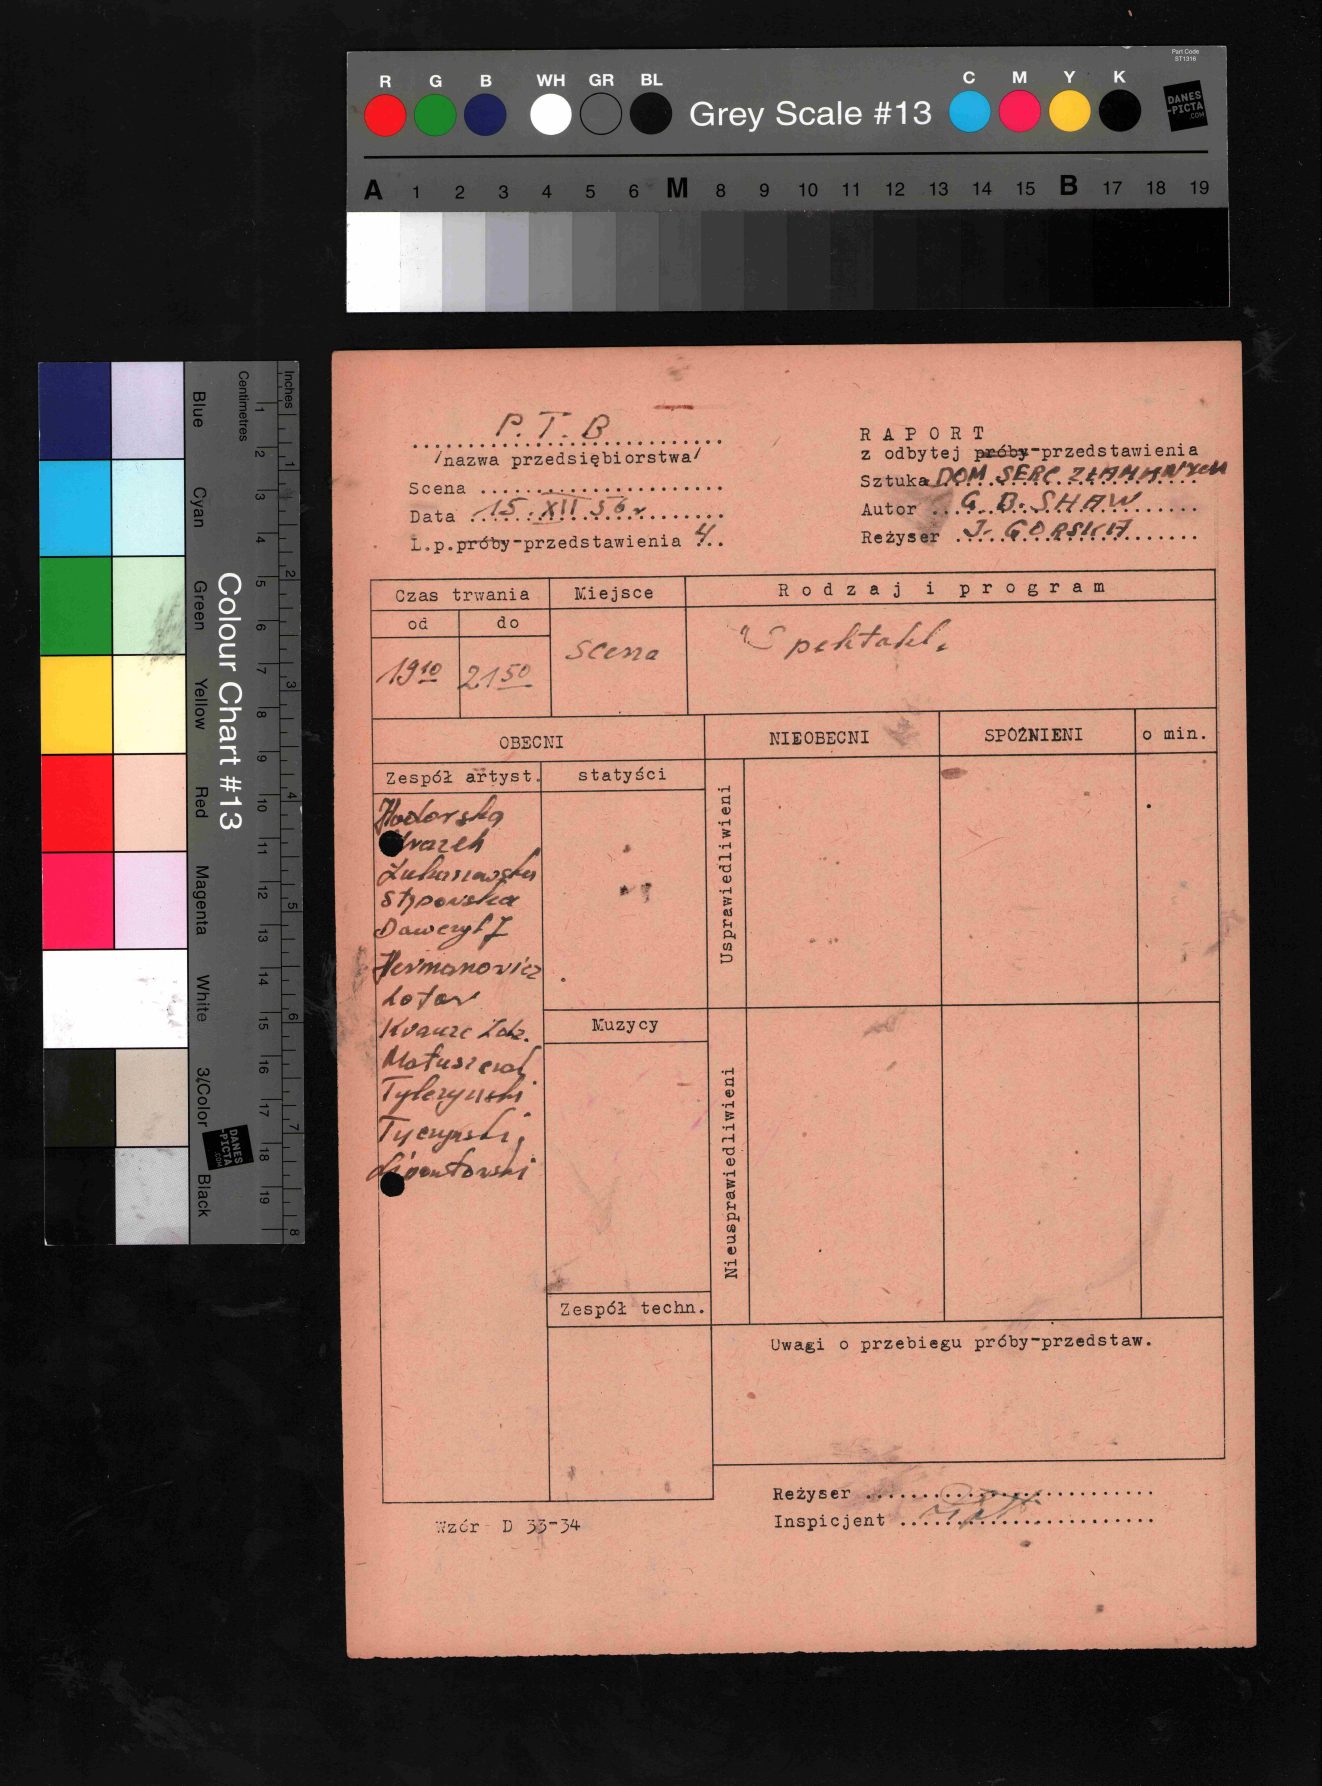 Part Code
ST1316
R G B WH GR BL Grey Scale #13 C M Y K
DANES
-PICTA
.COM
A 1 2 3 4 5 6 M 8 9 10 11 12 13 14 15 B 17 18 19
Colour Chart #13
Blue Cyan Green Yellow Red Magenta White 3/Color Black
Centimetres
1 2 3 4 5 6 7 8 9 10 11 12 13 14 15 16 17 18 19
Inches
1 2 3 4 5 6 7 8
DANES
-PICTA
.COM
P. T. B
/nazwa przedsiębiorstwa/
Scena
Data 15 XII 56r
L.p.próby-przedstawienia 4
RAPORT
z odbytej próby-przedstawienia
Sztuka DOM SERC ZŁAMANYCH
Autor G. B. SHAW
Reżyser J. GÓRSKA
Czas trwania
Miejsce
Rodzaj i program
od do
19 10
21 50
scena
Spektakl.
OBECNI
NIEOBECNI
SPÓŹNIENI
o min.
Zespół artyst.
statyści
Usprawiedliwieni
Hodorska
Mrazek
Stpowska
Hermanowicz
Lotar
Krauze
Tyczyński
Muzycy
Nieusprawiedliwieni
Zespół techn.
Uwagi o przebiegu próby-przedstaw.
Reżyser
Inspicjent
Wzór D 33-34